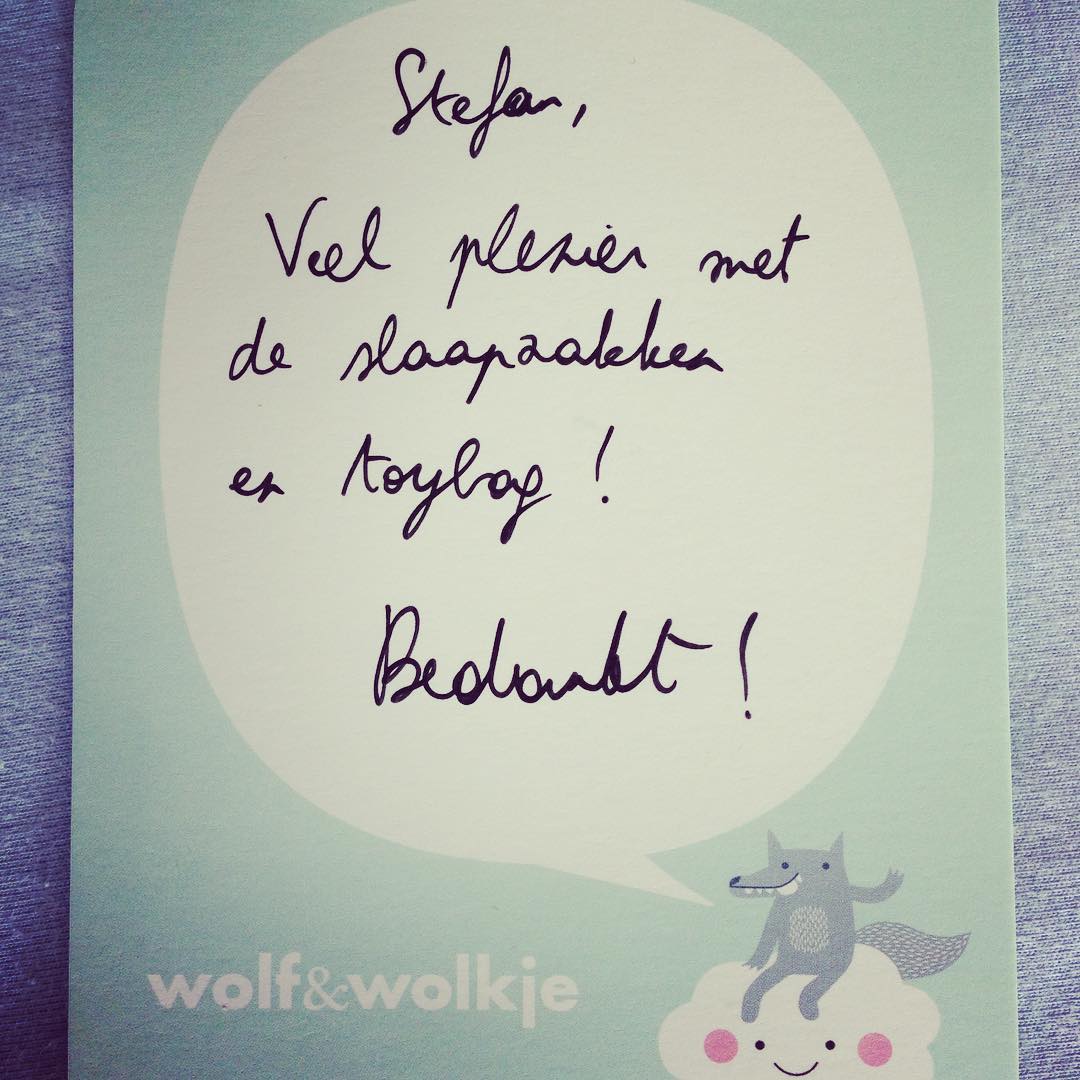 Stefan,
Veel plezier met
de slaapzakken
en toybag !
Bedankt !
wolf&wolkje